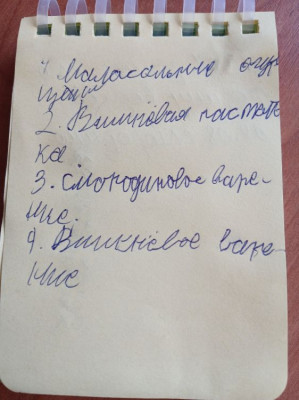 1. Маласольные огур
цы
2. Вишнёвая пастил
ка
3. смородиновое варе-
ние.
4. Вишнёвое варе
ние